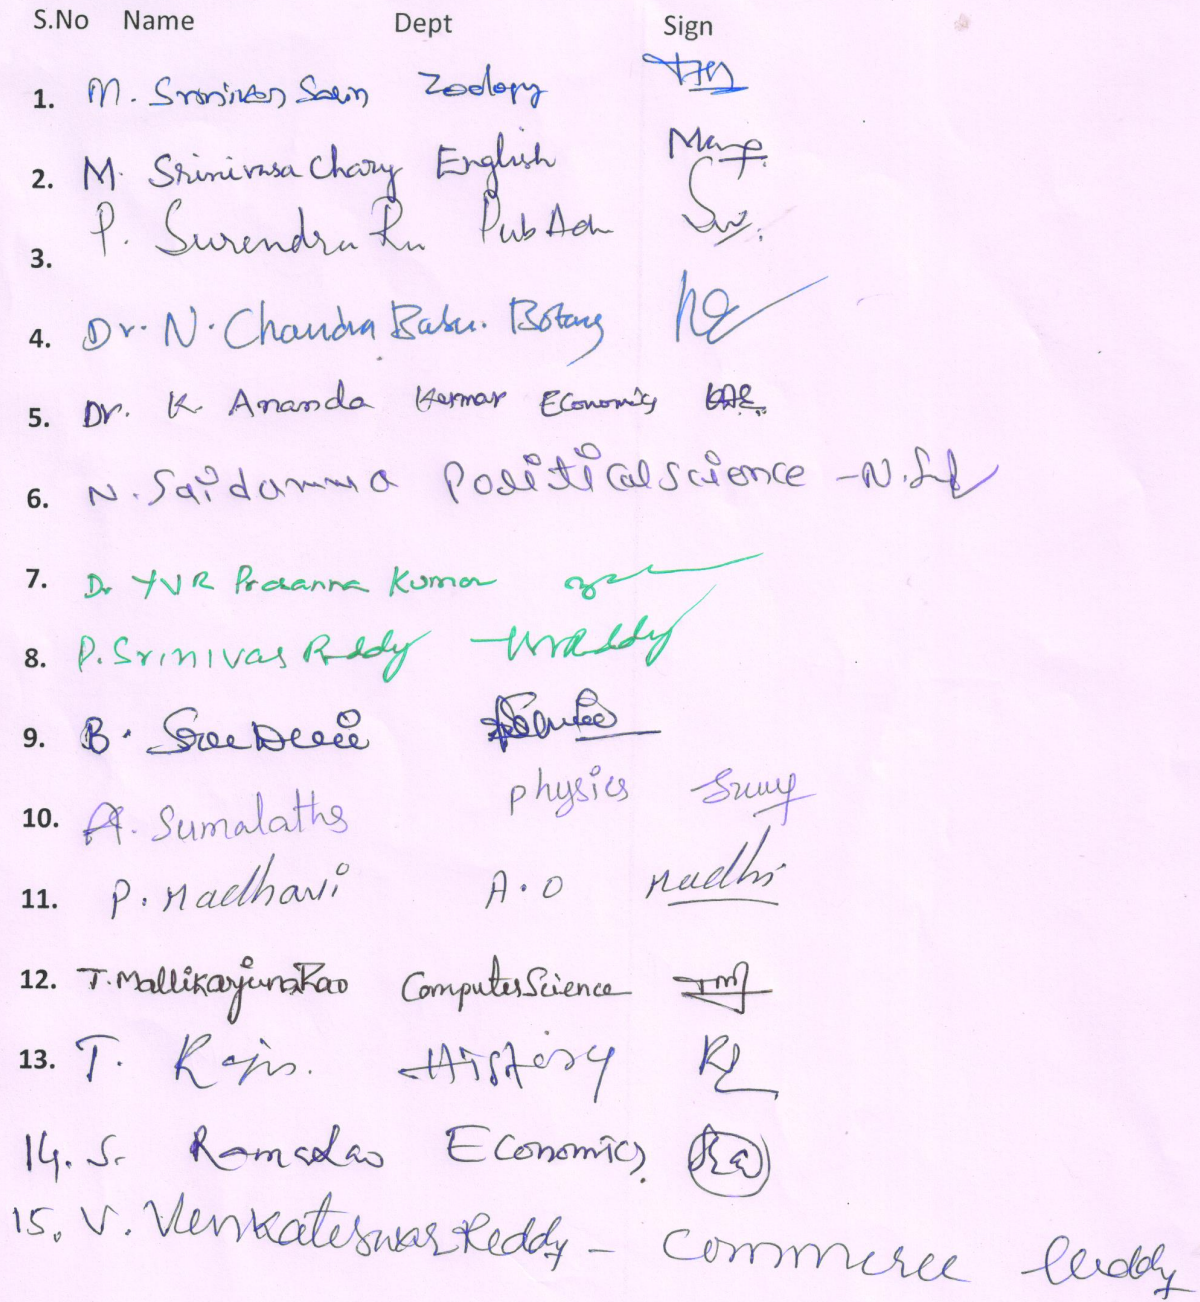 S.No Name Dept Sign
1. M. Srinivas Zoology
2. M. Srinivasa Chary English
3. P. Surendra Pub Adn
4. Dr. N. Chandra Babu. Botany
5. Dr. K. Ananda Kumar Economics
6. N. Saidamma Political science - N.
7. Dr YVR Prasanna Kumar
8. P. Srinivas Reddy
9. B. Sree Devi
10. A. Sumalatha physics
11. P. Madhavi A.O Madhvi
12. T. Mallikarjuna Rao Computer Science
13. T. Raju. History
14. S. Rama Rao Economics
15. V. Venkateswar Reddy - Commerce